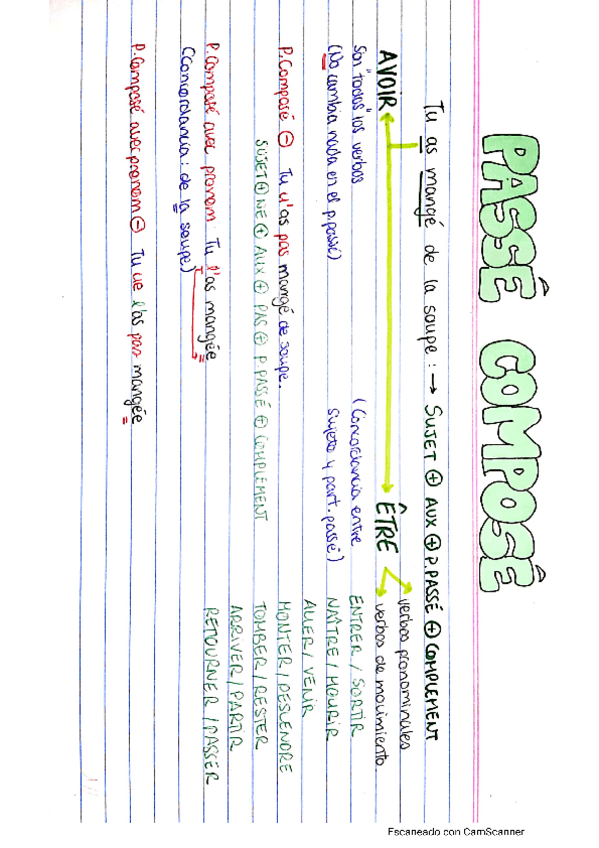 PASSÊ COMPOSÊ
Tu as mangé de la soupe : → SUJET + AUX + P.PASSÉ + COMPLEMENT
AVOIR
ÊTRE
verbos pronominales
verbos de movimiento.
Son "todos" los verbos
(No cambia nada en el p.passé)
(Concordancia entre
sujeto y part.passé)
ENTRER / SORTIR
NAÎTRE / MOURIR
ALLER / VENIR
MONTER / DESCENDRE
TOMBER / RESTER
ARRIVER / PARTIR
RETOURNER / PASSER
P.Composé ⊖ Tu n'as pas mangé de soupe.
SUJET + NE + AUX + PAS + P.PASSÉ + COMPLÉMENT
P.Composé avec pronom: Tu l'as mangée
(Concordancia: de la soupe)
P.Composé avec pronom ⊖ Tu ne l'as pas mangée
Escaneado con CamScanner